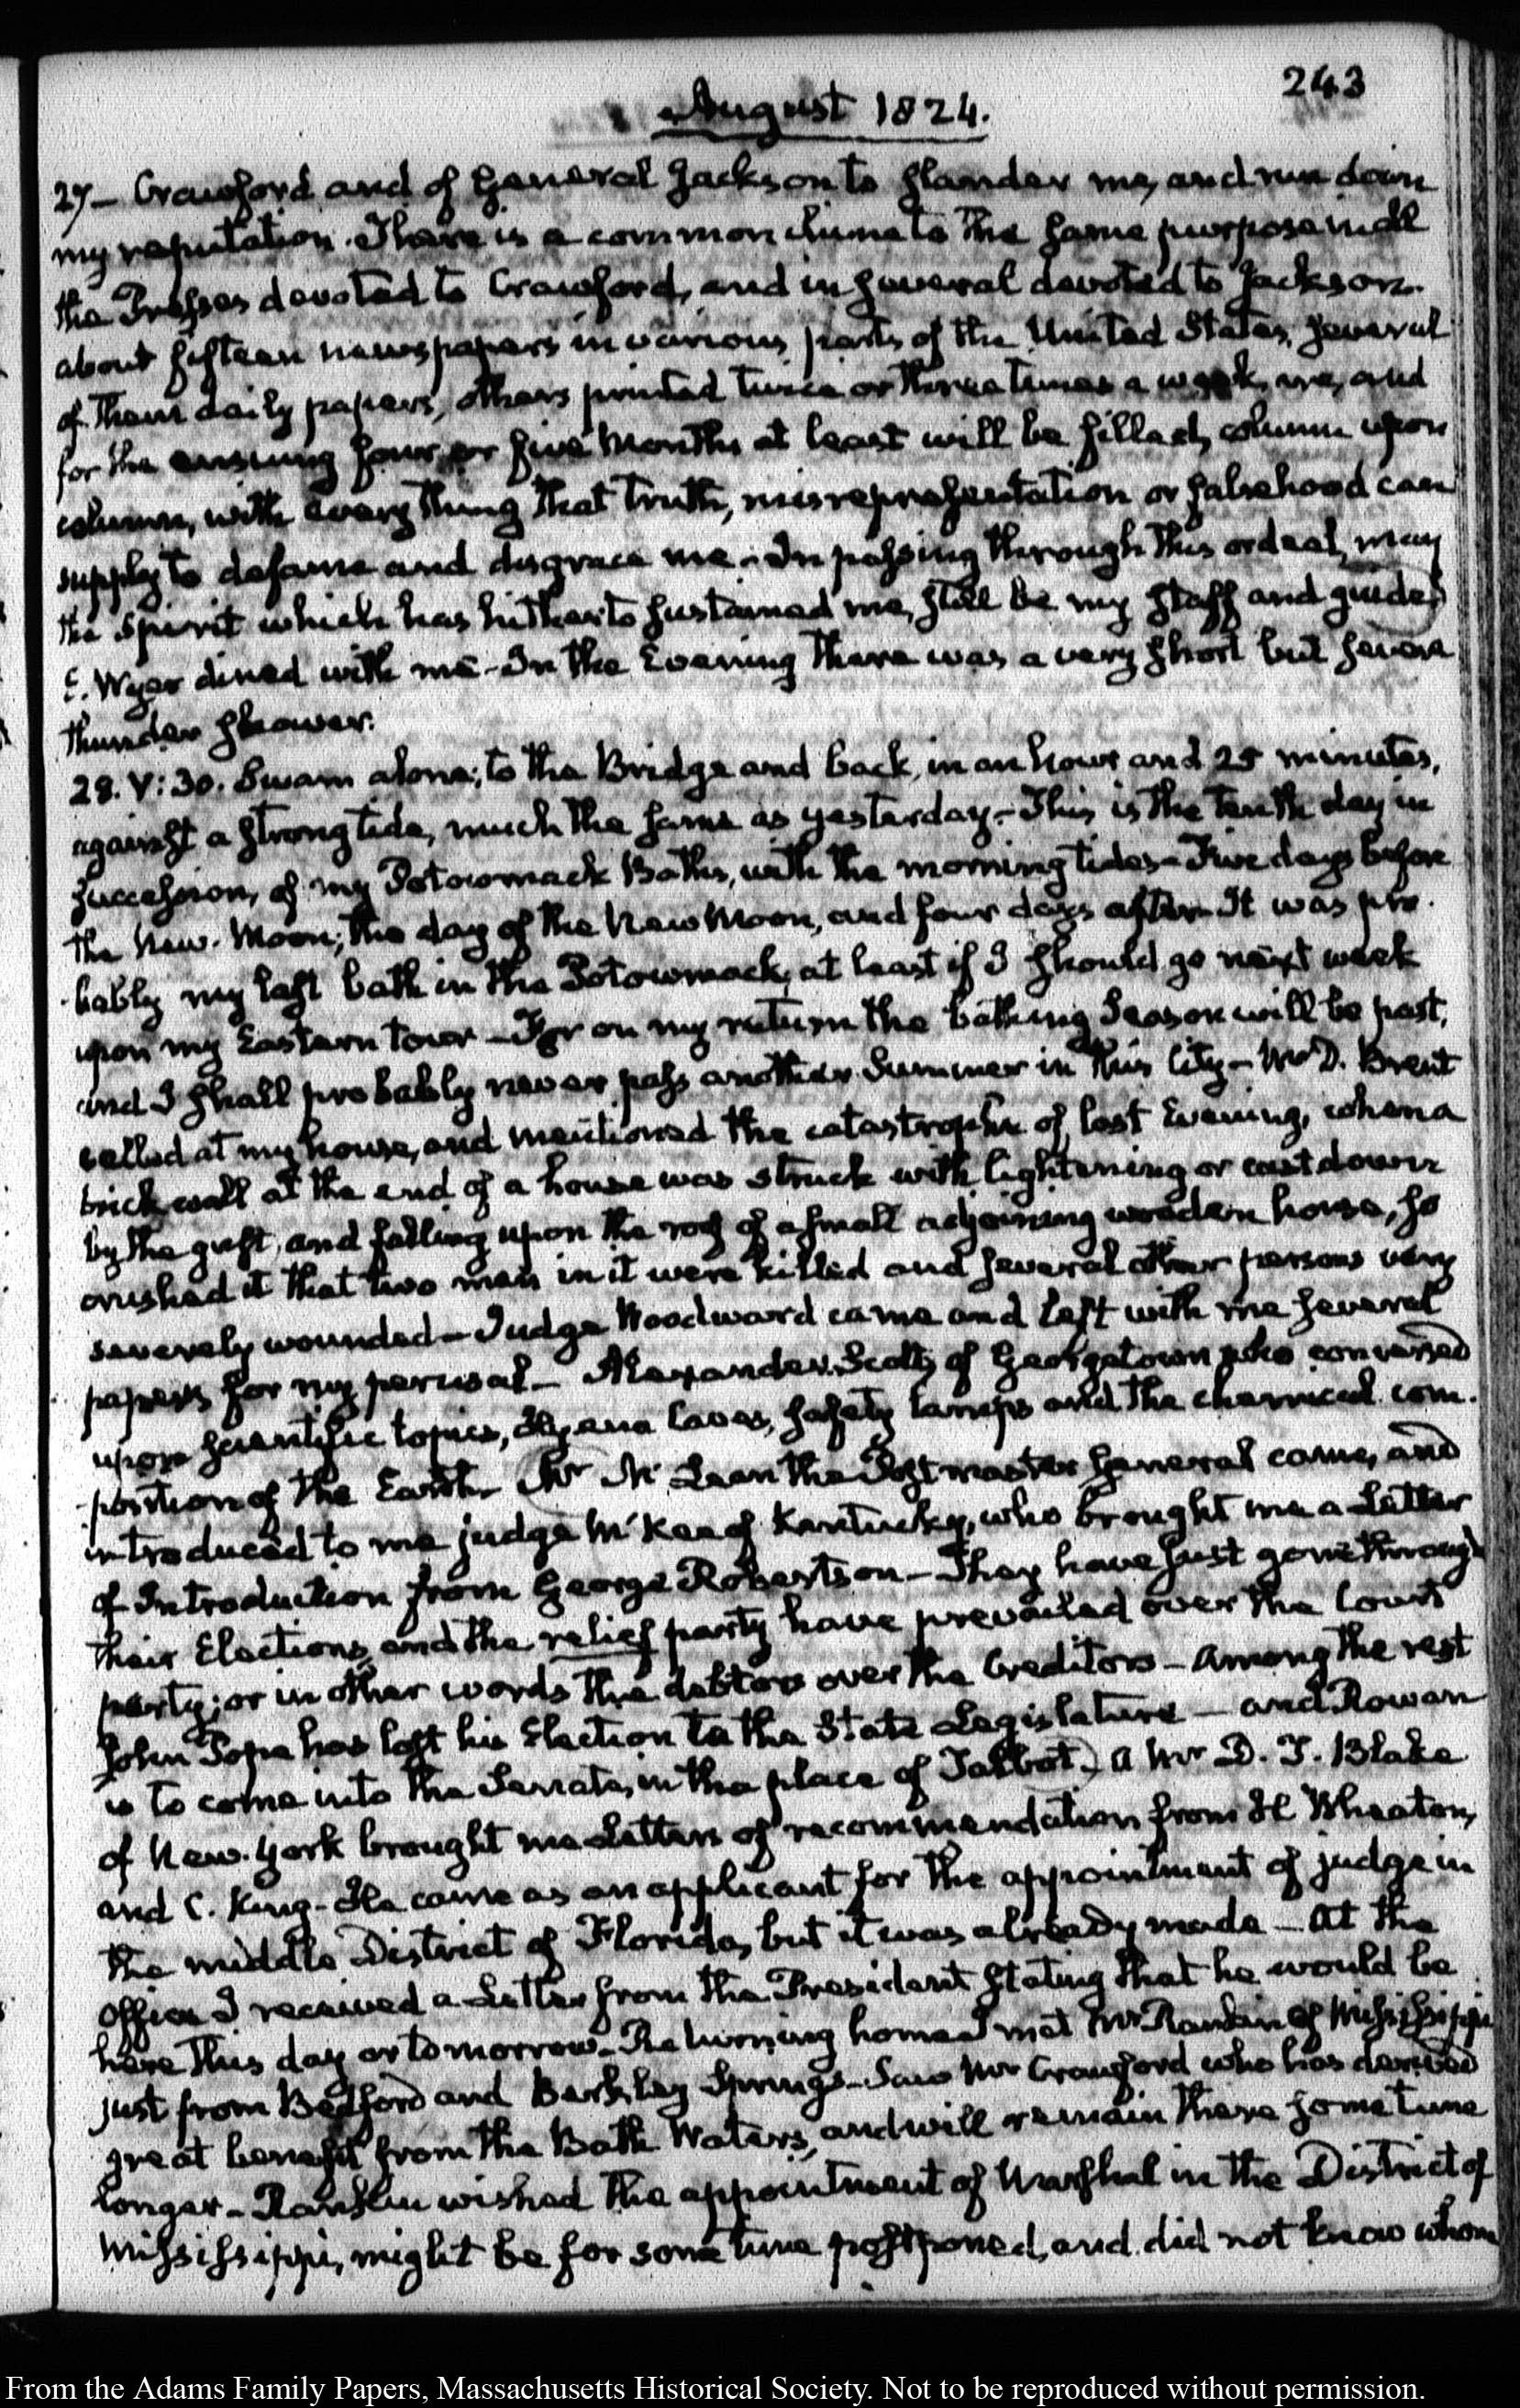 243
August 1824.
27— Crawford and of General Jackson to slander me, and run down
my reputation. There is a common chime to the same purpose in all
the Presses devoted to Crawford, and in several devoted to Jackson.
about fifteen newspapers in various parts of the United States, several
of them daily papers, others printed twice or three times a week, are, and
for the ensuing four or five Months at least will be filled, column upon
column, with every thing that truth, misrepresentation or falsehood can
supply to defame and disgrace me. In passing through this ordeal, may
the Spirit which has hitherto sustained me, still be my staff and guide.
E. Wyer dined with me— In the Evening there was a very short but severe
thunder shower.
28. V:30. Swam alone; to the Bridge and back, in an hour and 25 minutes,
against a strong tide, much the same as yesterday— This is the tenth day in
succession, of my Potowmack Baths, with the morning tides— Five days before
the New-Moon; the day of the New Moon, and four days after— It was pro-
bably my last bath in the Potowmack, at least if I should go next week
upon my Eastern tour— For on my return the bathing Season will be past,
and I shall probably never pass another Summer in this City— Mr D. Brent
called at my house, and mentioned the catastrophe of last Evening, when a
brick wall at the end of a house was struck with lightening or cast down
by the gust, and falling upon the roof of a small adjoining wooden house, so
crushed it that two men in it were killed and several other persons very
severely wounded— Judge Woodward came and left with me several
papers for my perusal— Alexander Scott, of Georgetown who conversed
upon scientific topics, Hyena Caves, safety lamps and the chemical com-
position of the Earth. Mr McLean the Post master General came, and
introduced to me judge McKee of Kentucky, who brought me a Letter
of Introduction from George Robertson— They have just gone through
their Elections, and the relief party have prevailed over the Court
party; or in other words the debtors over the Creditors— Among the rest
John Pope has lost his Election to the State Legislature— and Rowan
is to come into the Senate, in the place of Talbot. A Mr D. T. Blake
of New-York brought me Letters of recommendation from H Wheaton,
and C. King— He came as an applicant for the appointment of judge in
the middle District of Florida, but it was already made— At the
Office I received a Letter from the President stating that he would be
here this day or tomorrow. Returning home I met Mr Rankin of Mississippi
just from Bedford and Berkley Springs— Saw Mr Crawford who has derived
great benefit from the Bath Waters, and will remain there some time
longer— Rankin wished the appointment of Marshal in the District of
Mississippi, might be for some time postponed, and did not know whom
From the Adams Family Papers, Massachusetts Historical Society. Not to be reproduced without permission.